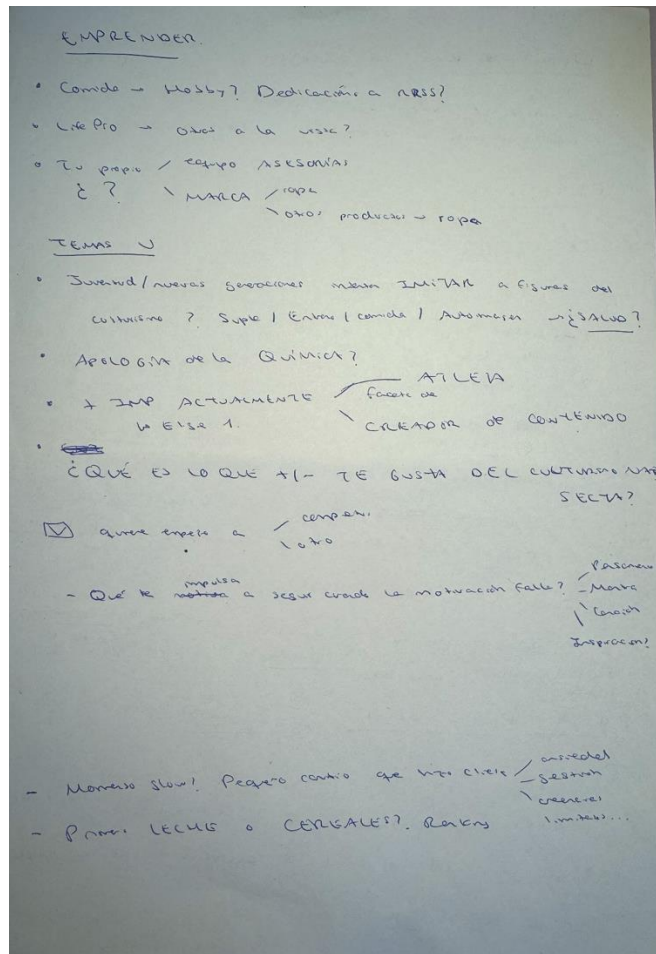 EMPRENDER.
• Comida → Hobby? Dedicación a RRSS?
• LifePro → Otras a la vista?
• Tu propio / equipo ASESORÍAS
¿ ? \ MARCA / ropa
\ otros productos → ropa
TEMAS V
• Juventud/nuevas generaciones IMITAR a figuras del
culturismo? Suple / Entreno / comida / Autoimagen → ¿SALUD?
• APOLOGÍA de la QUÍMICA?
• + IMP ACTUALMENTE / ATLETA
faceta de
↳ Elige 1. \ CREADOR DE CONTENIDO
•
¿QUÉ ES LO QUE +/- TE GUSTA DEL CULTURISMO
SECTA?
quiere empezar a / competir
\ otro
- Qué te impulsa a seguir cuando la motivación falla? / Personas
- Mente
\ Corazón
Inspiración?
- Momento slow? Pequeño cambio que hizo click / ansiedad
- gestión
\ creencias
limitantes...
- Primero LECHE o CEREALES?